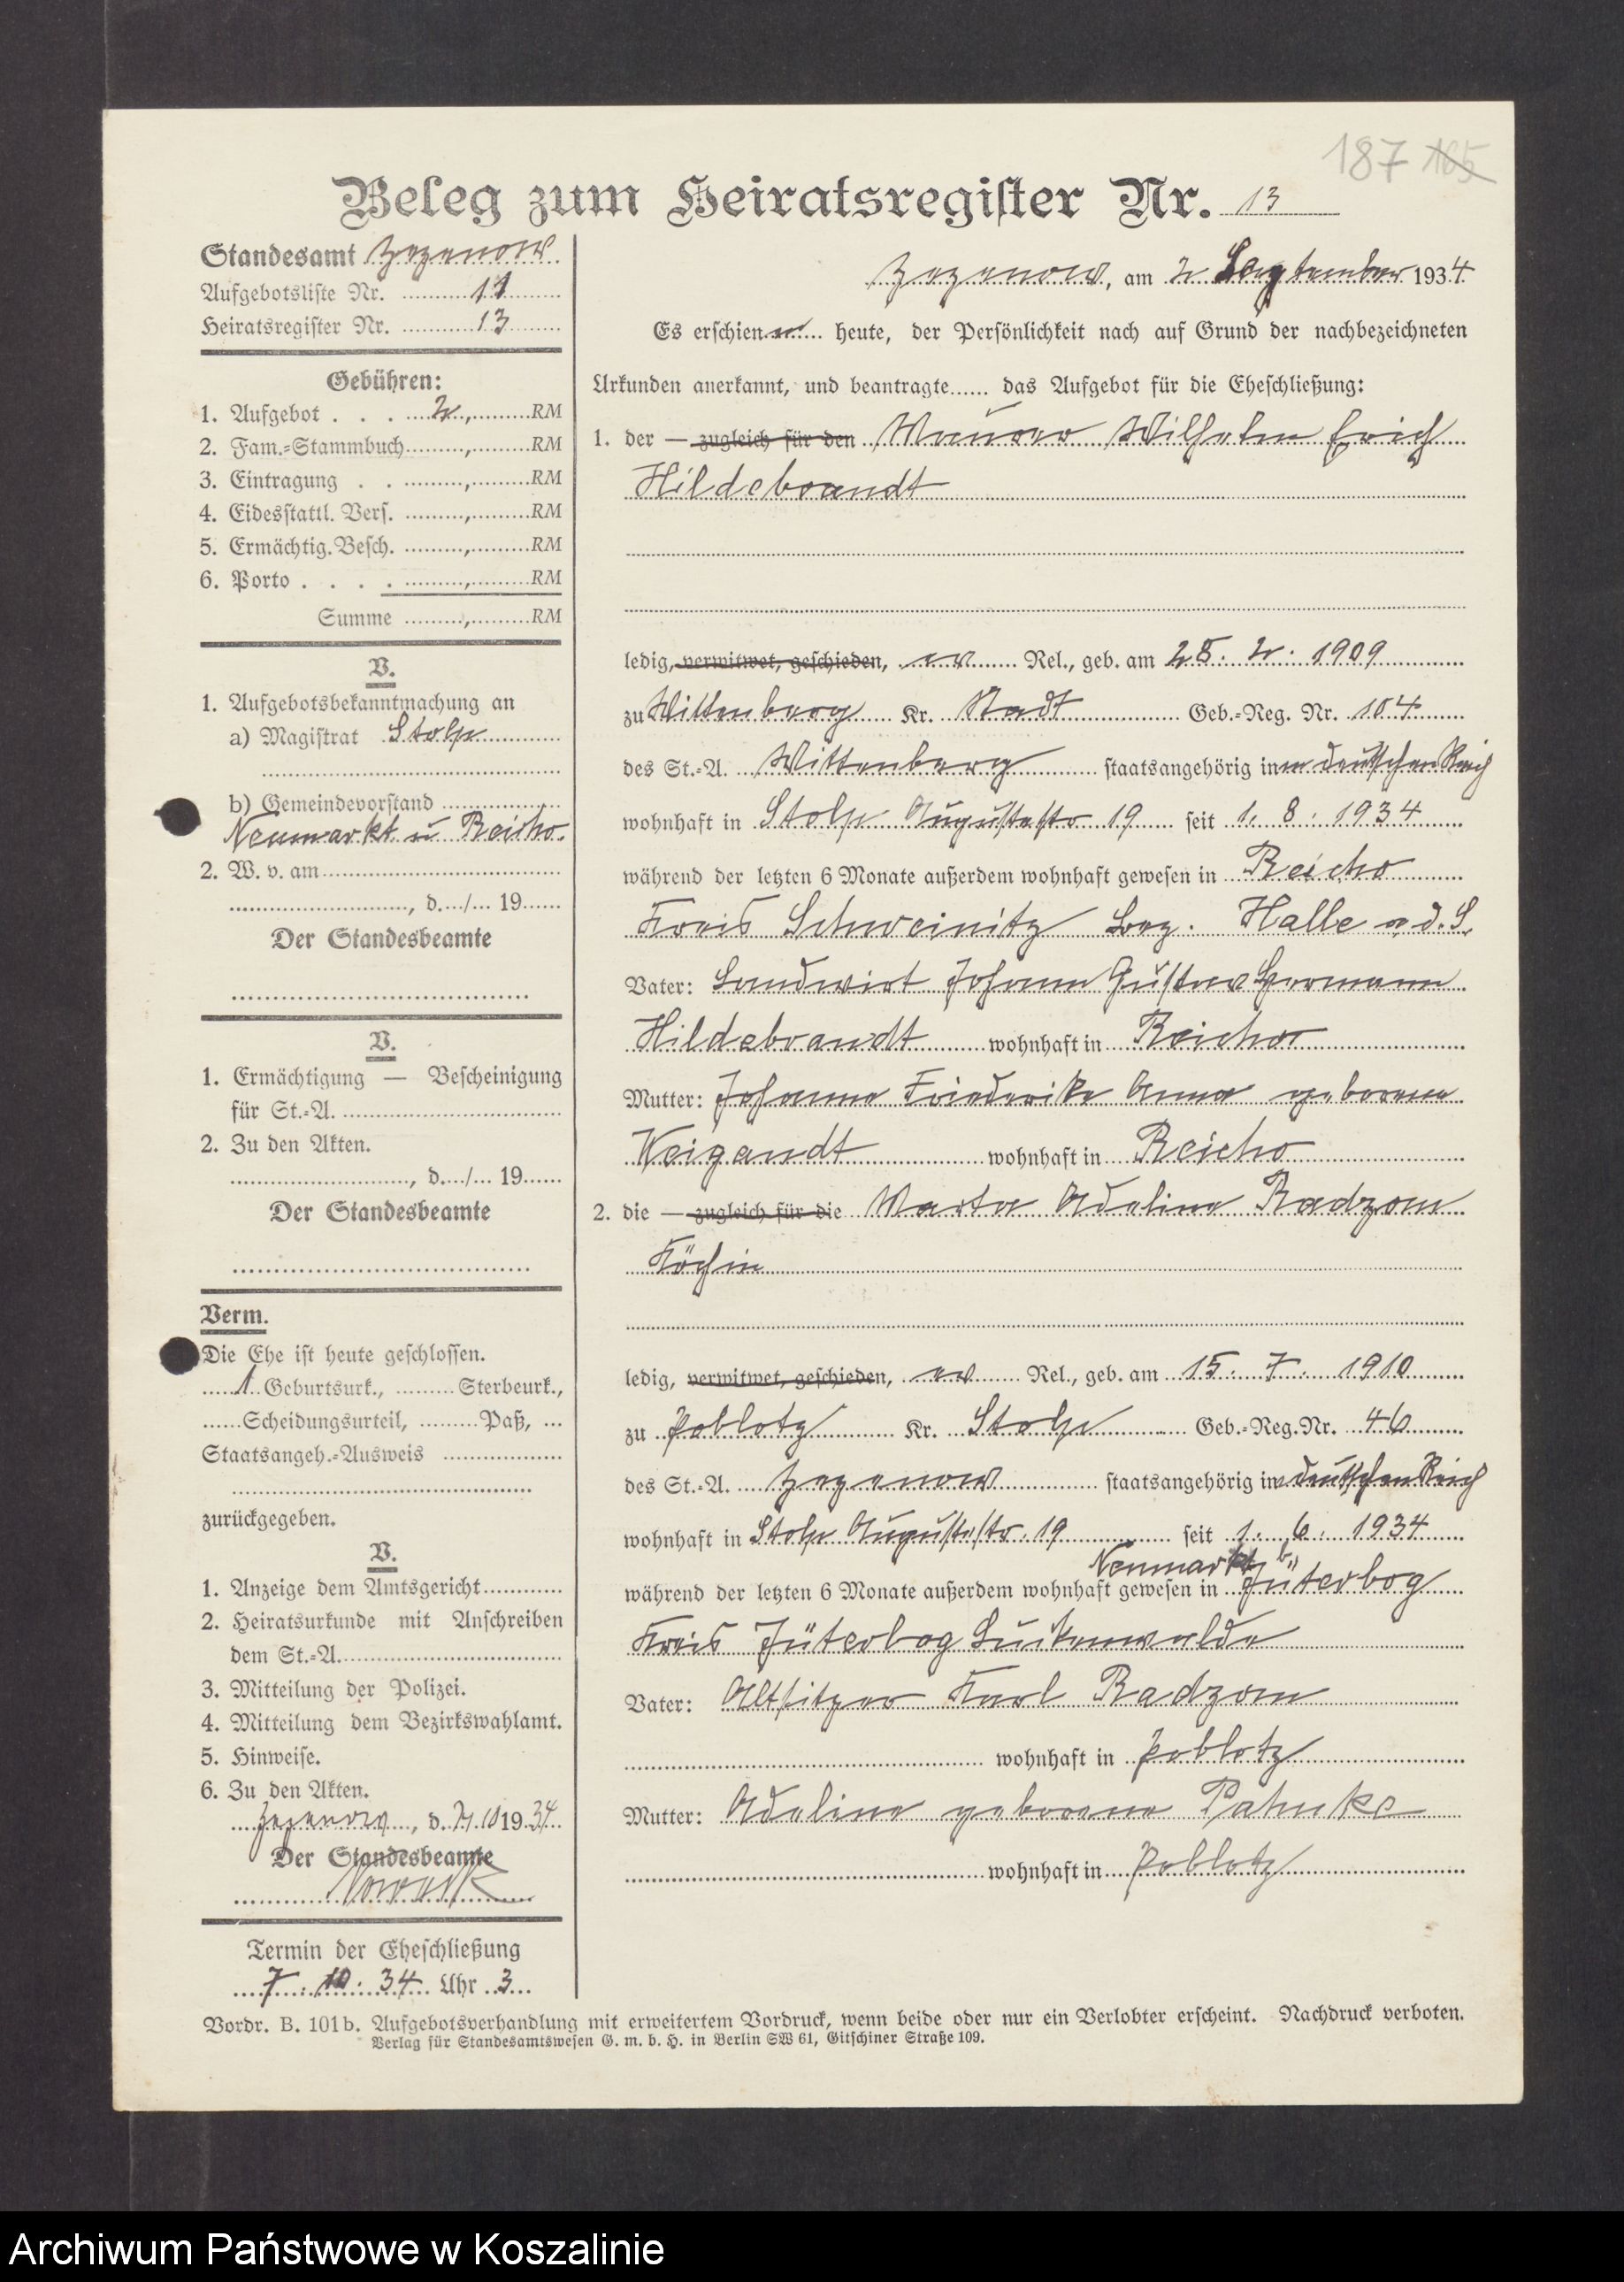 187 165
Beleg zum Heiratsregister Nr. 13
Standesamt Zezenow
Aufgebotsliste Nr. 11
Heiratsregister Nr. 13
Gebühren:
1. Aufgebot . . . 2, RM
2. Fam.-Stammbuch , RM
3. Eintragung . . , RM
4. Eidesstattl. Vers. , RM
5. Ermächtig. Besch. , RM
6. Porto . . . . , RM
Summe , RM
V.
1. Aufgebotsbekanntmachung an
a) Magistrat Stolp
b) Gemeindevorstand
Neumarkt u Reicho.
2. W. v. am
, d. / 19
Der Standesbeamte
V.
1. Ermächtigung — Bescheinigung
für St.-A.
2. Zu den Akten.
, d. / 19
Der Standesbeamte
Verm.
Die Ehe ist heute geschlossen.
1 Geburtsurk., Sterbeurk.,
Scheidungsurteil, Paß,
Staatsangeh.-Ausweis
zurückgegeben.
V.
1. Anzeige dem Amtsgericht
2. Heiratsurkunde mit Anschreiben
dem St.-A.
3. Mitteilung der Polizei.
4. Mitteilung dem Bezirkswahlamt.
5. Hinweise.
6. Zu den Akten.
Zezenow, d. 7/10 19 34
Der Standesbeamte
Termin der Eheschließung
7. 10. 34 Uhr 3
Zezenow, am 2 September 1934
Es erschienen heute, der Persönlichkeit nach auf Grund der nachbezeichneten
Urkunden anerkannt, und beantragte das Aufgebot für die Eheschließung:
1. der — zugleich für den Maurer Wilhelm Erich
Hildebrandt
ledig, verwitwet, geschieden, ev Rel., geb. am 28. 2. 1909
zu Wittenberg Kr. Stadt Geb.-Reg. Nr. 104
des St.-A. Wittenberg staatsangehörig im deutschen Reich
wohnhaft in Stolp Augustastr 19 seit 1. 8. 1934
während der letzten 6 Monate außerdem wohnhaft gewesen in Reicho
Kreis Schweinitz Bez. Halle a. d. S.
Vater: Landwirt Johann Gustav Hermann
Hildebrandt wohnhaft in Reicho
Mutter: Johanne Friederike Anna geborene
Weigandt wohnhaft in Reicho
2. die — zugleich für die Marta Adeline Radzom
Köchin
ledig, verwitwet, geschieden, ev Rel., geb. am 15. 7. 1910
zu Poblotz Kr. Stolp Geb.-Reg. Nr. 46
des St.-A. Zezenow staatsangehörig im deutschen Reich
wohnhaft in Stolp Augustastr. 19 seit 1. 6. 1934
Neumarkt b/
während der letzten 6 Monate außerdem wohnhaft gewesen in Jüterbog
Kreis Jüterbog Luckenwalde
Vater: Altsitzer Karl Radzom
wohnhaft in Poblotz
Mutter: Adeline geborene Pahnke
wohnhaft in Poblotz
Vordr. B. 101b. Aufgebotsverhandlung mit erweitertem Vordruck, wenn beide oder nur ein Verlobter erscheint. Nachdruck verboten.
Verlag für Standesamtswesen G. m. b. H. in Berlin SW 61, Gitschiner Straße 109.
Archiwum Państwowe w Koszalinie